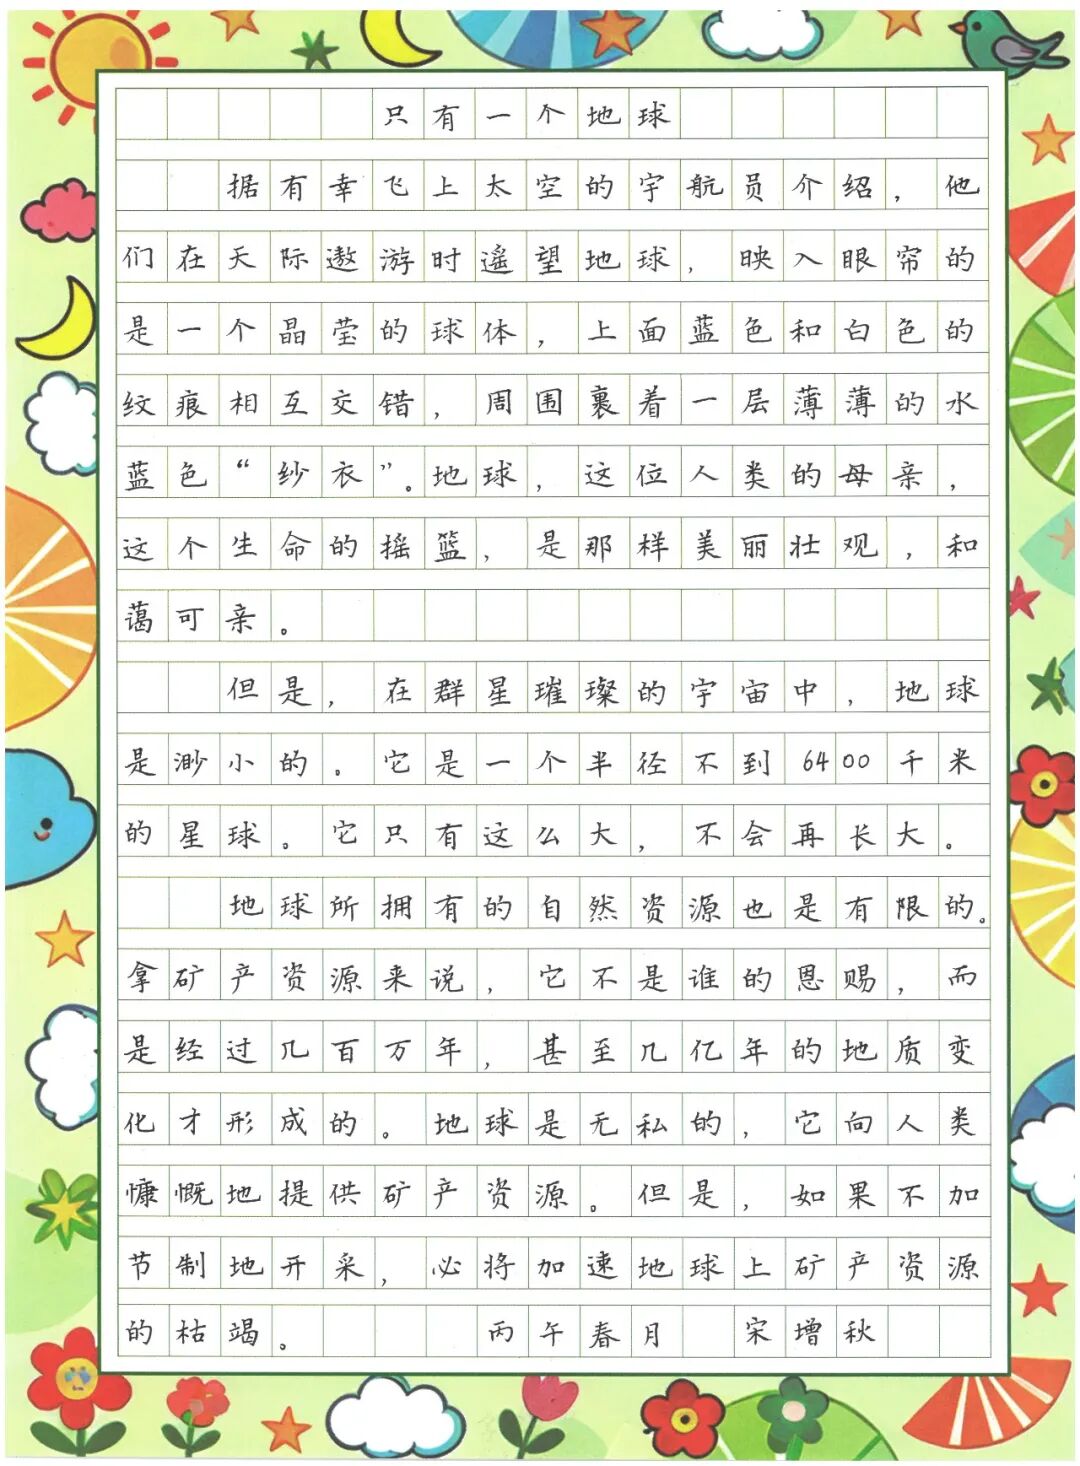 只有一个地球
据有幸飞上太空的宇航员介绍，他
们在天际遨游时遥望地球，映入眼帘的
是一个晶莹的球体，上面蓝色和白色的
纹痕相互交错，周围裹着一层薄薄的水
蓝色“纱衣”。地球，这位人类的母亲，
这个生命的摇篮，是那样美丽壮观，和
蔼可亲。
但是，在群星璀璨的宇宙中，地球
是渺小的。它是一个半径不到6400千米
的星球。它只有这么大，不会再长大。
地球所拥有的自然资源也是有限的。
拿矿产资源来说，它不是谁的恩赐，而
是经过几百万年，甚至几亿年的地质变
化才形成的。地球是无私的，它向人类
慷慨地提供矿产资源。但是，如果不加
节制地开采，必将加速地球上矿产资源
的枯竭。 丙午春月 宋增秋